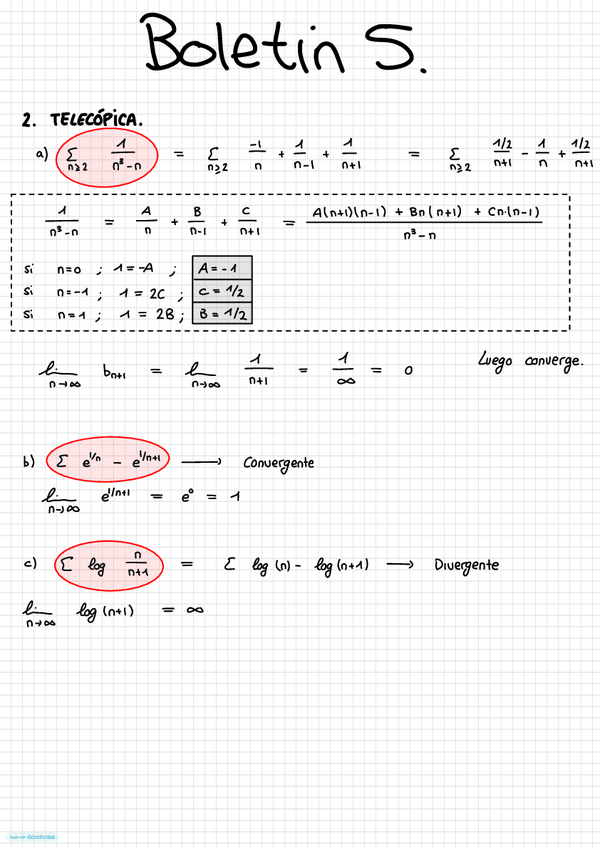 Boletin 5.
2. TELECÓPICA.
a) Σ n≥2 1/(n³-n) = Σ n≥2 -1/n + 1/(n-1) + 1/(n+1) = Σ n≥2 (1/2)/(n+1) - 1/n + (1/2)/(n+1)
1/(n³-n) = A/n + B/(n-1) + C/(n+1) = (A(n+1)(n-1) + Bn(n+1) + Cn·(n-1))/(n³-n)
si n=0 ; 1=-A ; A=-1
si n=-1 ; 1=2C ; C=1/2
si n=1 ; 1=2B ; B=1/2
lim n→∞ bn+1 = lim n→∞ 1/(n+1) = 1/∞ = 0 Luego converge.
b) Σ e^1/n - e^1/n+1 → Convergente
lim n→∞ e^1/n+1 = e⁰ = 1
c) Σ log n/(n+1) = Σ log(n) - log(n+1) → Divergente
lim n→∞ log(n+1) = ∞
Goodnotes